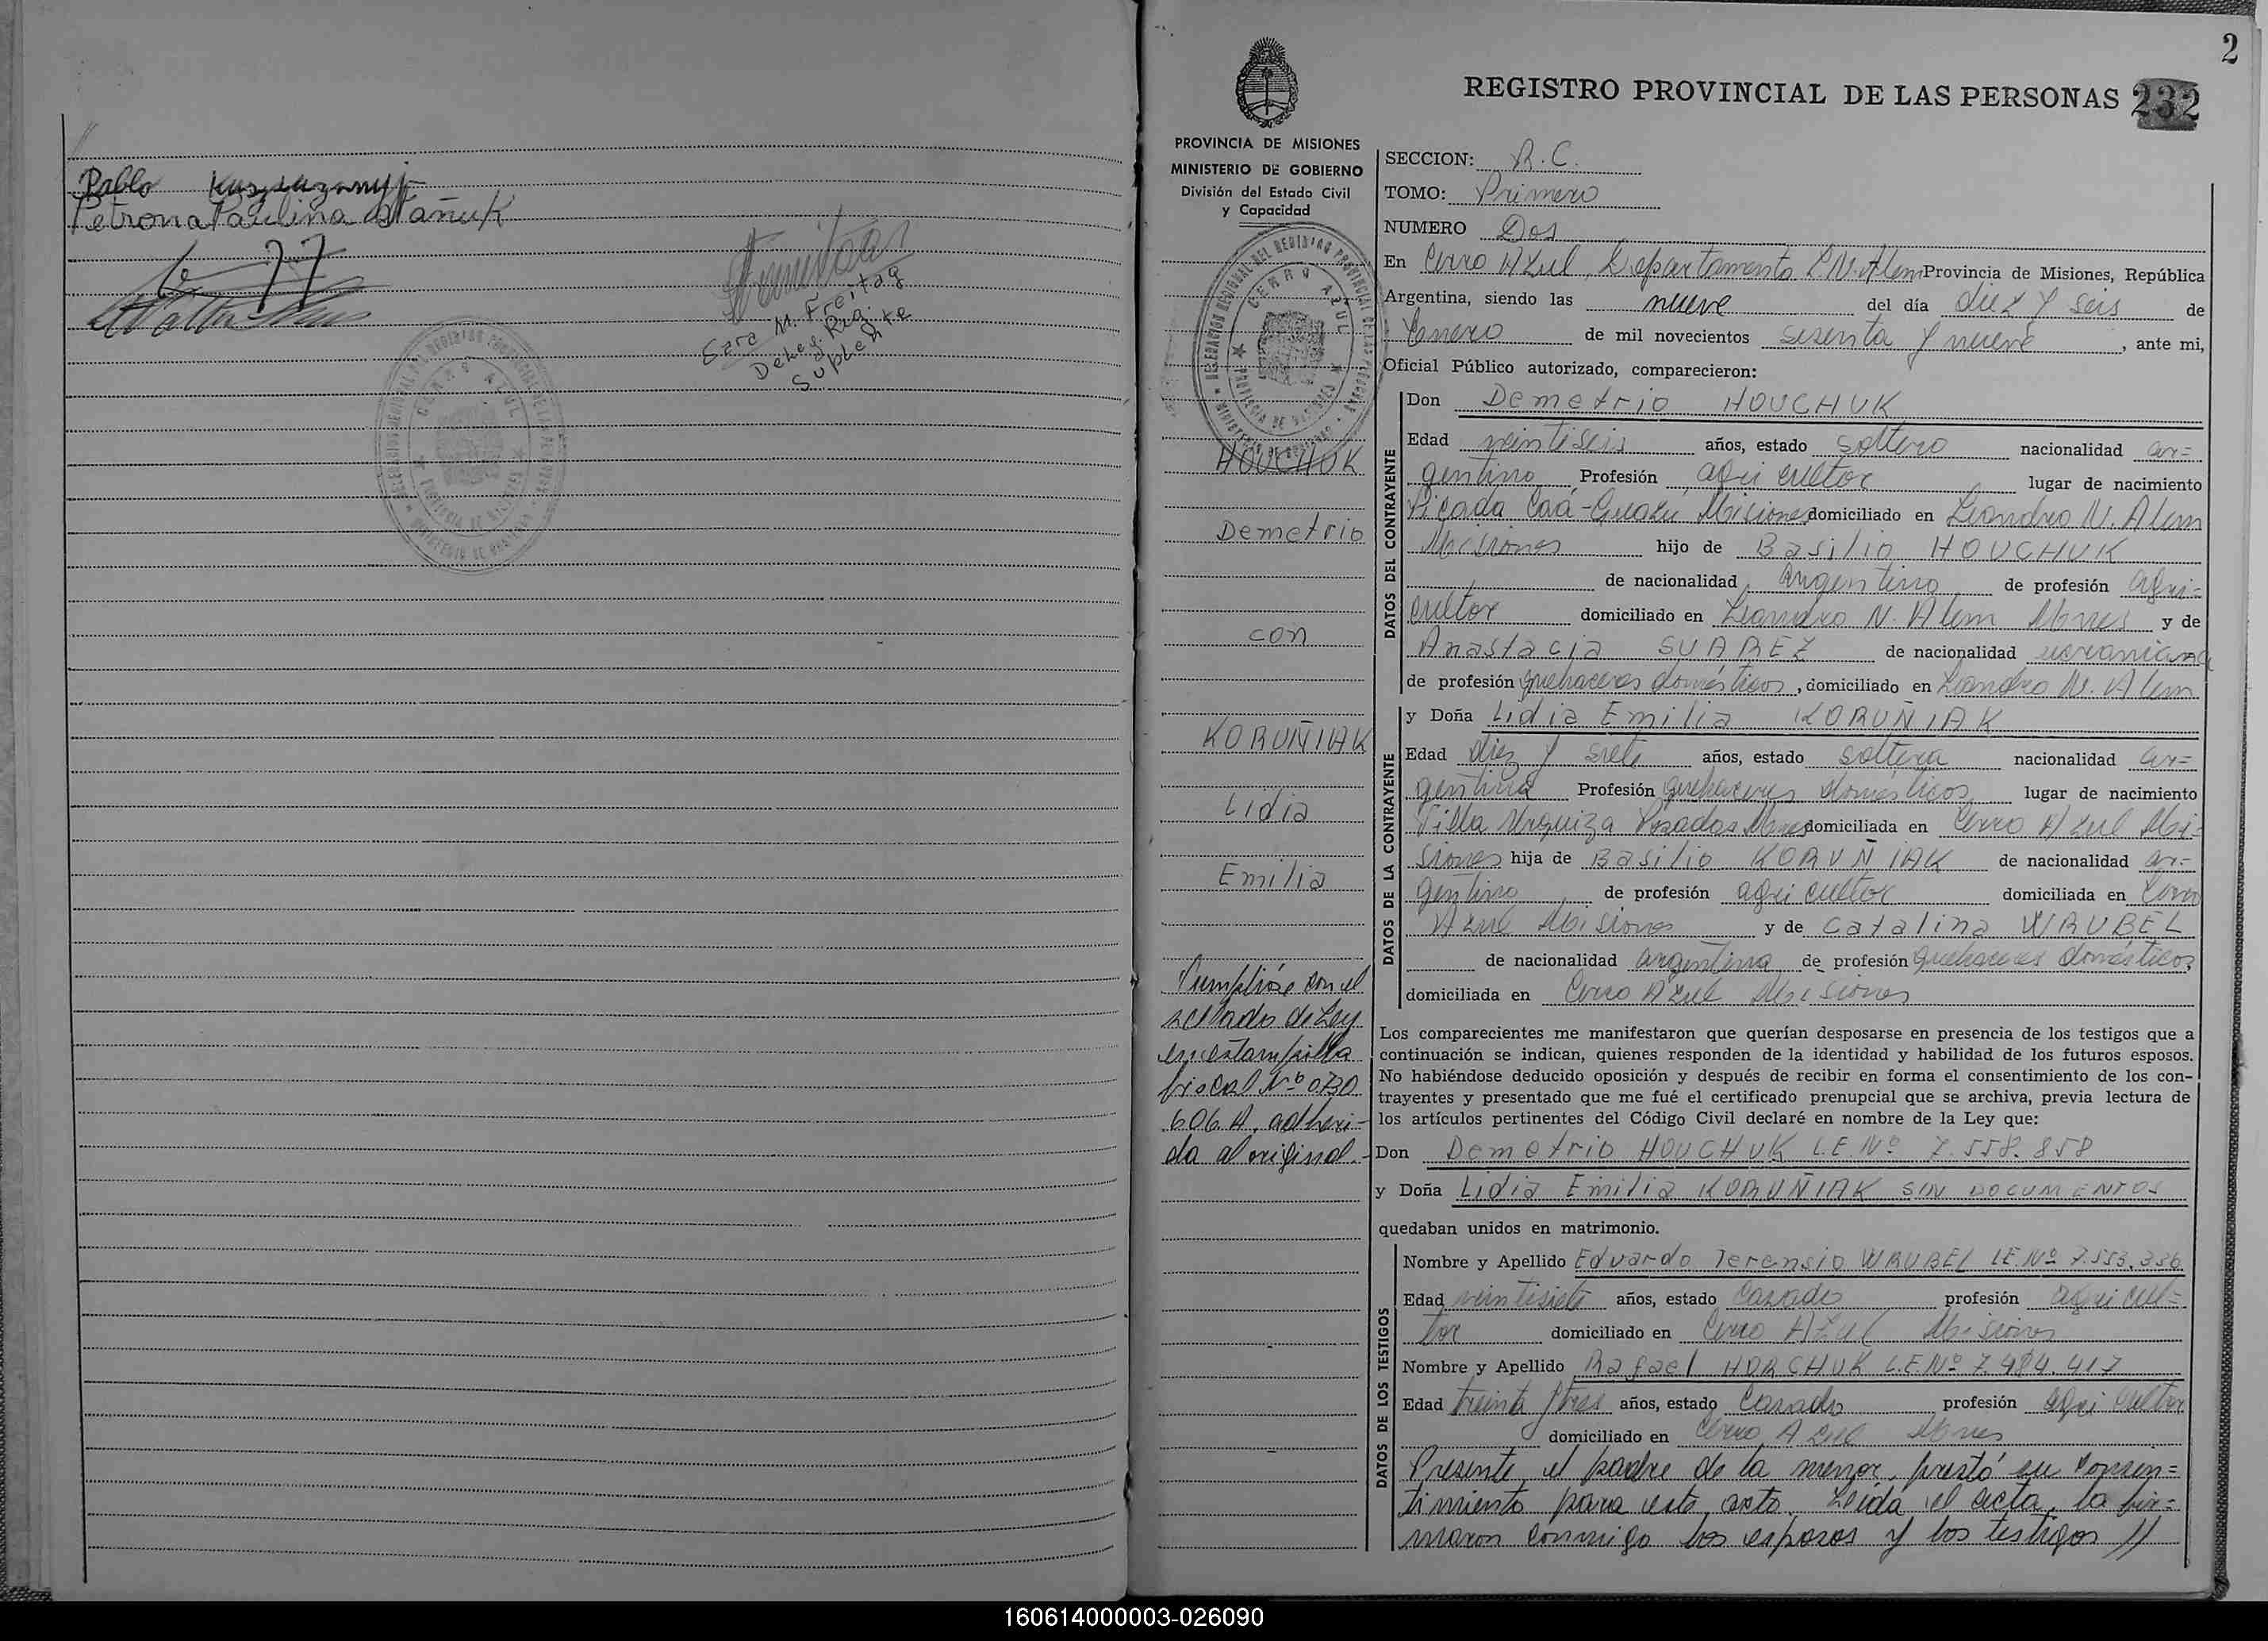 Pablo
Petrona Paulina Stañuk
Sara M. Freitag
Deleg. Reg.
Suplente
2
REGISTRO PROVINCIAL DE LAS PERSONAS 232
PROVINCIA DE MISIONES
MINISTERIO DE GOBIERNO
División del Estado Civil
y Capacidad
HOUCHUK
Demetrio
con
KORUÑIAK
Lidia
Emilia
Cumplióse con el
sellado de Ley
en estampilla
fiscal Nº 0730
606 A, adheri-
da al original.-
SECCION: R.C.
TOMO: Primero
NUMERO Dos
En Cerro Azul, Departamento L.N. Alem Provincia de Misiones, República
Argentina, siendo las nueve del día diez y seis de
Enero de mil novecientos sesenta y nueve, ante mi,
Oficial Público autorizado, comparecieron:
DATOS DEL CONTRAYENTE
Don Demetrio HOUCHUK
Edad veintiseis años, estado soltero nacionalidad ar=
gentino Profesión agricultor lugar de nacimiento
Picada Caá-Guazú Misiones domiciliado en Leandro N. Alem
Misiones hijo de Basilio HOUCHUK
de nacionalidad Argentino de profesión agri=
cultor domiciliado en Leandro N. Alem Mnes y de
Anastacia SUAREZ de nacionalidad ucraniana
de profesión quehaceres domésticos, domiciliado en Leandro N. Alem
DATOS DE LA CONTRAYENTE
y Doña Lidia Emilia KORUÑIAK
Edad diez y siete años, estado soltera nacionalidad ar=
gentina Profesión quehaceres domésticos lugar de nacimiento
Villa Urquiza Posadas Mnes domiciliada en Cerro Azul Mi=
siones hija de Basilio KORUÑIAK de nacionalidad ar=
gentino de profesión agricultor domiciliada en Cerro
Azul Misiones y de Catalina WRUBEL
de nacionalidad argentina de profesión quehaceres domésticos
domiciliada en Cerro Azul Misiones
Los comparecientes me manifestaron que querían desposarse en presencia de los testigos que a
continuación se indican, quienes responden de la identidad y habilidad de los futuros esposos.
No habiéndose deducido oposición y después de recibir en forma el consentimiento de los con-
trayentes y presentado que me fué el certificado prenupcial que se archiva, previa lectura de
los artículos pertinentes del Código Civil declaré en nombre de la Ley que:
Don Demetrio HOUCHUK L.E. Nº 7.558.858
y Doña Lidia Emilia KORUÑIAK SIN DOCUMENTOS
quedaban unidos en matrimonio.
DATOS DE LOS TESTIGOS
Nombre y Apellido Eduardo Terensio WRUBEL LE. Nº 7.553.336
Edad veintisiete años, estado casado profesión agricul=
tor domiciliado en Cerro Azul Misiones
Nombre y Apellido Rafael HORCHUK L.E. Nº 7.484.417
Edad treinta y tres años, estado Casado profesión agricultor
domiciliado en Cerro Azul Mnes
Presente, el padre de la menor, prestó su consen=
timiento para este acto. Leída el acta, la fir=
maron conmigo los esposos y los testigos //
160614000003-026090